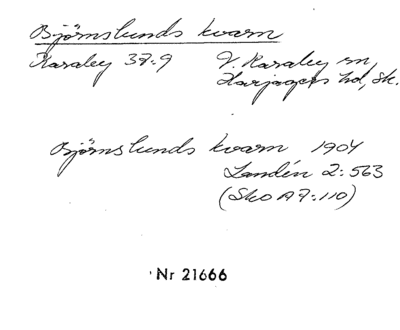 Björnslunds kvarn
Karaby 37:9 V. Karaby sn,
Harjagers hd, Sk.
Björnslunds kvarn 1904
Landén 2:563
(Sko A7:110)
Nr 21666